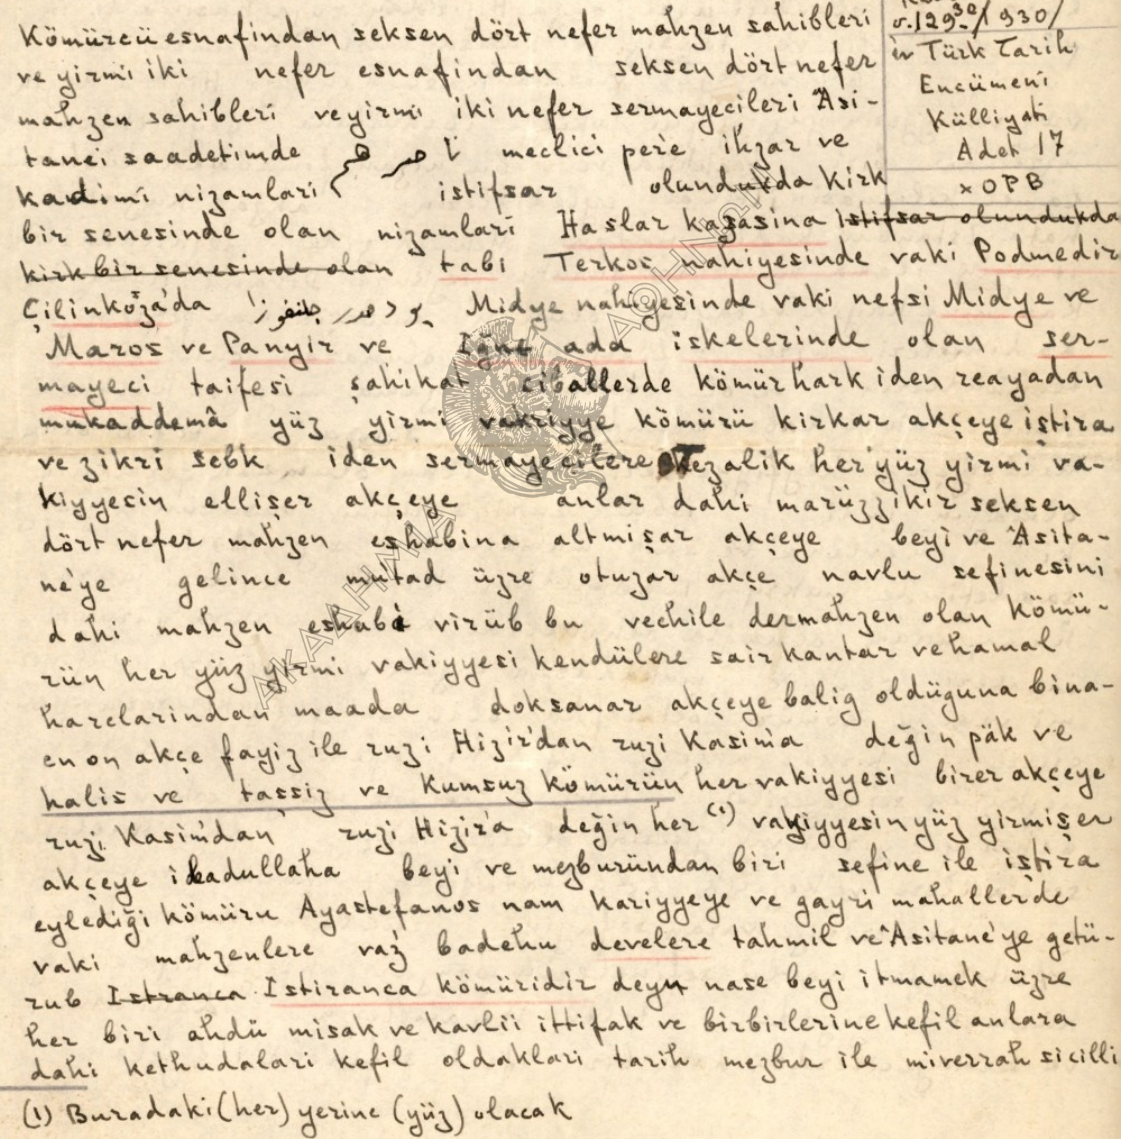 Kömürcü esnafindan seksen dört nefer mahzen sahibleri
ve yirmi iki nefer esnafindan seksen dört nefer
mahzen sahibleri ve yirmi iki nefer sermayecileri Âsi-
tanei saadetimde meclici per'e ihzar ve
kadimi nizamlari istifsar olundukda Kirk
bir senesinde olan nizamlari Haslar kazasina istifsar olundukda
kirk bir senesinde olan tabi Terkos nahiyesinde vaki Podmedir
Çilinkoza'da Midye nahiyesinde vaki nefsi Midye ve
Maros ve Panyir ve Iğne ada iskelerinde olan ser-
mayeci taifesi şahikat ciballerde kömür hark iden reayadan
mukaddemâ yüz yirmi vakiyye kömürü kirkar akçeye iştira
ve zikri sebk iden sermayecilere kezalik her yüz yirmi va-
kiyyesin ellişer akçeye anlar dahi marüzzikir seksen
dört nefer mahzen eshabina altmişar akçeye beyi ve Âsita-
ne'ye gelince mu'tad üzre otuzar akçe navlu sefinesini
dahi mahzen eshabi virüb bu vechile dermahzen olan Kömü-
rün her yüz yirmi vakiyyesi kendülere sair kantar ve hamal
harclarindan maada doksanar akçeye balig oldüguna bina-
en on akçe fayiz ile ruzi Hizir'dan ruzi Kasim'a değin pâk ve
halis ve taşsiz ve Kumsuz kömürün her vakiyyesi birer akçeye
ruzi Kasim'dan ruzi Hizir'a değin her (1) vakiyyesin yüz yirmişer
akçeye ibadullaha beyi ve mezburündan biri sefine ile iştira
eylediği kömürü Ayastefanos nam kariyyeye ve gayri mahallerde
vaki mahzenlere vaz' badehu develere tahmil ve Âsitane'ye getü-
rub Istranca Istiranca kömüridir deyu nase beyi itmamek üzre
her biri ahdü misak ve kavlü ittifak ve birbirlerine kefil anlara
dahi kethudalari kefil oldaklari tarih mezbur ile miverrah sicilli
(1) Buradaki (her) yerine (yüz) olacak
s.129-30/930/
Türk Tarih
Encümeni
Külliyati
Adet 17
x OPB
ΑΚΑΔΗΜΙΑ
ΑΘΗΝΩΝ